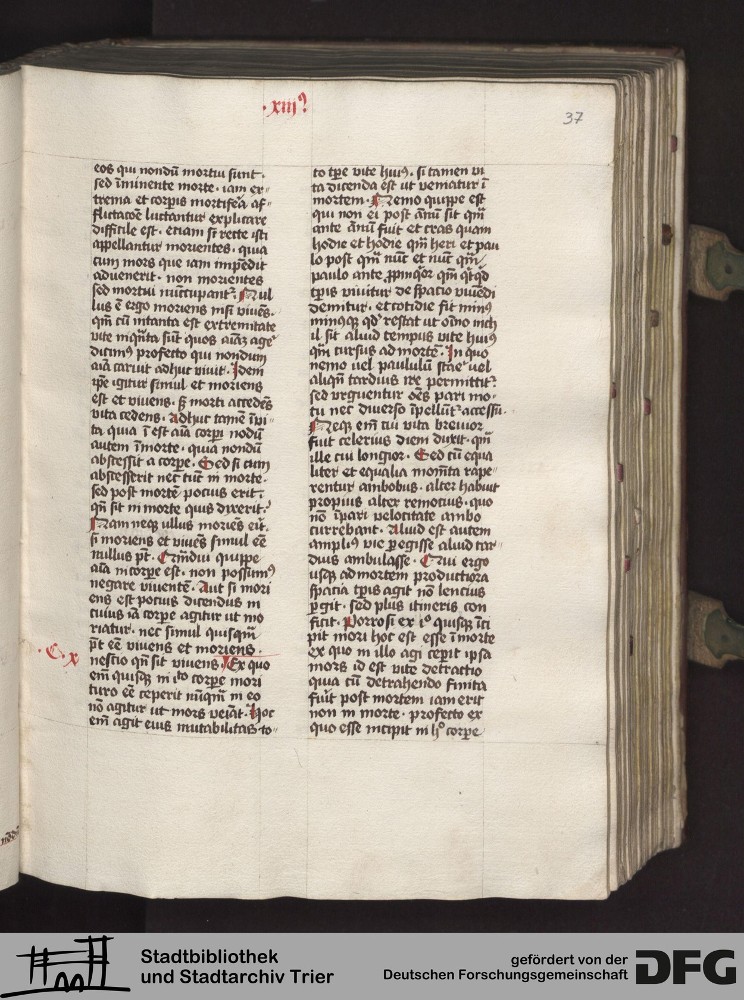 ·xiii⁹
37
eos qui nondū mortui sunt·
sed īminente morte· iam ex-
trema et corꝑis mortifera af-
flictacōe luctantur explicare
difficile est· etiam si recte isti
appellantur morientes· quia
cum mors que iam impedit
advenerit· non morientes
sed mortui nūcupant᷑· Nul
lus ē ergo moriens nisi vivēs·
qm̄ cū in tanta est extremitate
vite in q̄nta sūt quos aīaꝫ age᷑
dicim⁹ profecto qui nondum
aīa caruit adhuc vivit· Idem
ip̄e igitur simul et moriens
est et vivens· sꝫ morti accedēs
vita cedens· Adhuc tamē ī vi-
ta quia ī est aīa corꝑi nodū
autem ī morte· quia nondū
abscessit a corꝑe· Sed si cum
abscesserit nec tūc in morte·
sed post mortē pocius erit·
qn̄ sit in morte quis dixerit·
Nam neqꝫ ullus moriēs eīt·
si moriens et vivēs simul eē
nullus pt̄· Qm̄diu quippe
aīa in corꝑe est· non possum⁹
negare viventē· Aut si mori
ens est pocius dicendus in
cuius iā corꝑe agitur ut mo
riatur· nec simul quisqm̄
pt̄ eē vivens et moriens·
nescio qn̄ sit vivens· Ex quo
·C·x
em̄ quisqꝫ in isto corꝑe mori
turo eē ceperit nūqm̄ in eo
nō agitur ut mors veiāt· Hoc
em̄ agit eius mutabilitas to-
to tp̄e vite hui⁹· si tamen vi
ta dicenda est ut veniatur ī
mortem· Nemo quippe est
qui non ei post annū sit qm̄
ante annū fuit et cras quam
hodie et hodie qm̄ heri et pau
lo post qm̄ nūc et nūc qm̄
paulo ante ꝓpinqior qm̄ qitqd
tp̄is vivitur de spacio vivēdi
demitur· et cotidie fit min⁹
minusqꝫ qd̓ restat ut oīno nich
il sit aliud tempus vite hui⁹
qm̄ cursus ad mortē· In quo
nemo vel paululū stare vel
aliqn̄ tardius ire permittit᷑·
sed vrguentur oēs pari mo-
tu nec diverso īpellūt᷑ accessu·
Neqꝫ em̄ cui vita brevior
fuit celerius diem duxit· qm̄
ille cui longior· Sed cū equa
liter et equalia momēta rape-
rentur ambobus· alter habuit
propius alter remocius· quo
nō īpari velocitate ambo
currebant· Aliud est autem
ampli⁹ vie ꝑegisse aliud tar-
dius ambulasse· Qui ergo
usqꝫ ad mortem productiora
spacia tp̄is agit nō lencius
ꝑgit· sed plus itineris con
ficit· Porro si ex i° quisqꝫ īci
pit mori hoc est esse ī morte
ex quo in illo agi cepit ipsa
mors id est vite detractio
quia cū detrahendo finita
fuīt post mortem iam erit
non in morte· profecto ex
quo esse incipit in h° corꝑe
Stadtbibliothek
und Stadtarchiv Trier
gefördert von der
Deutschen Forschungsgemeinschaft
DFG